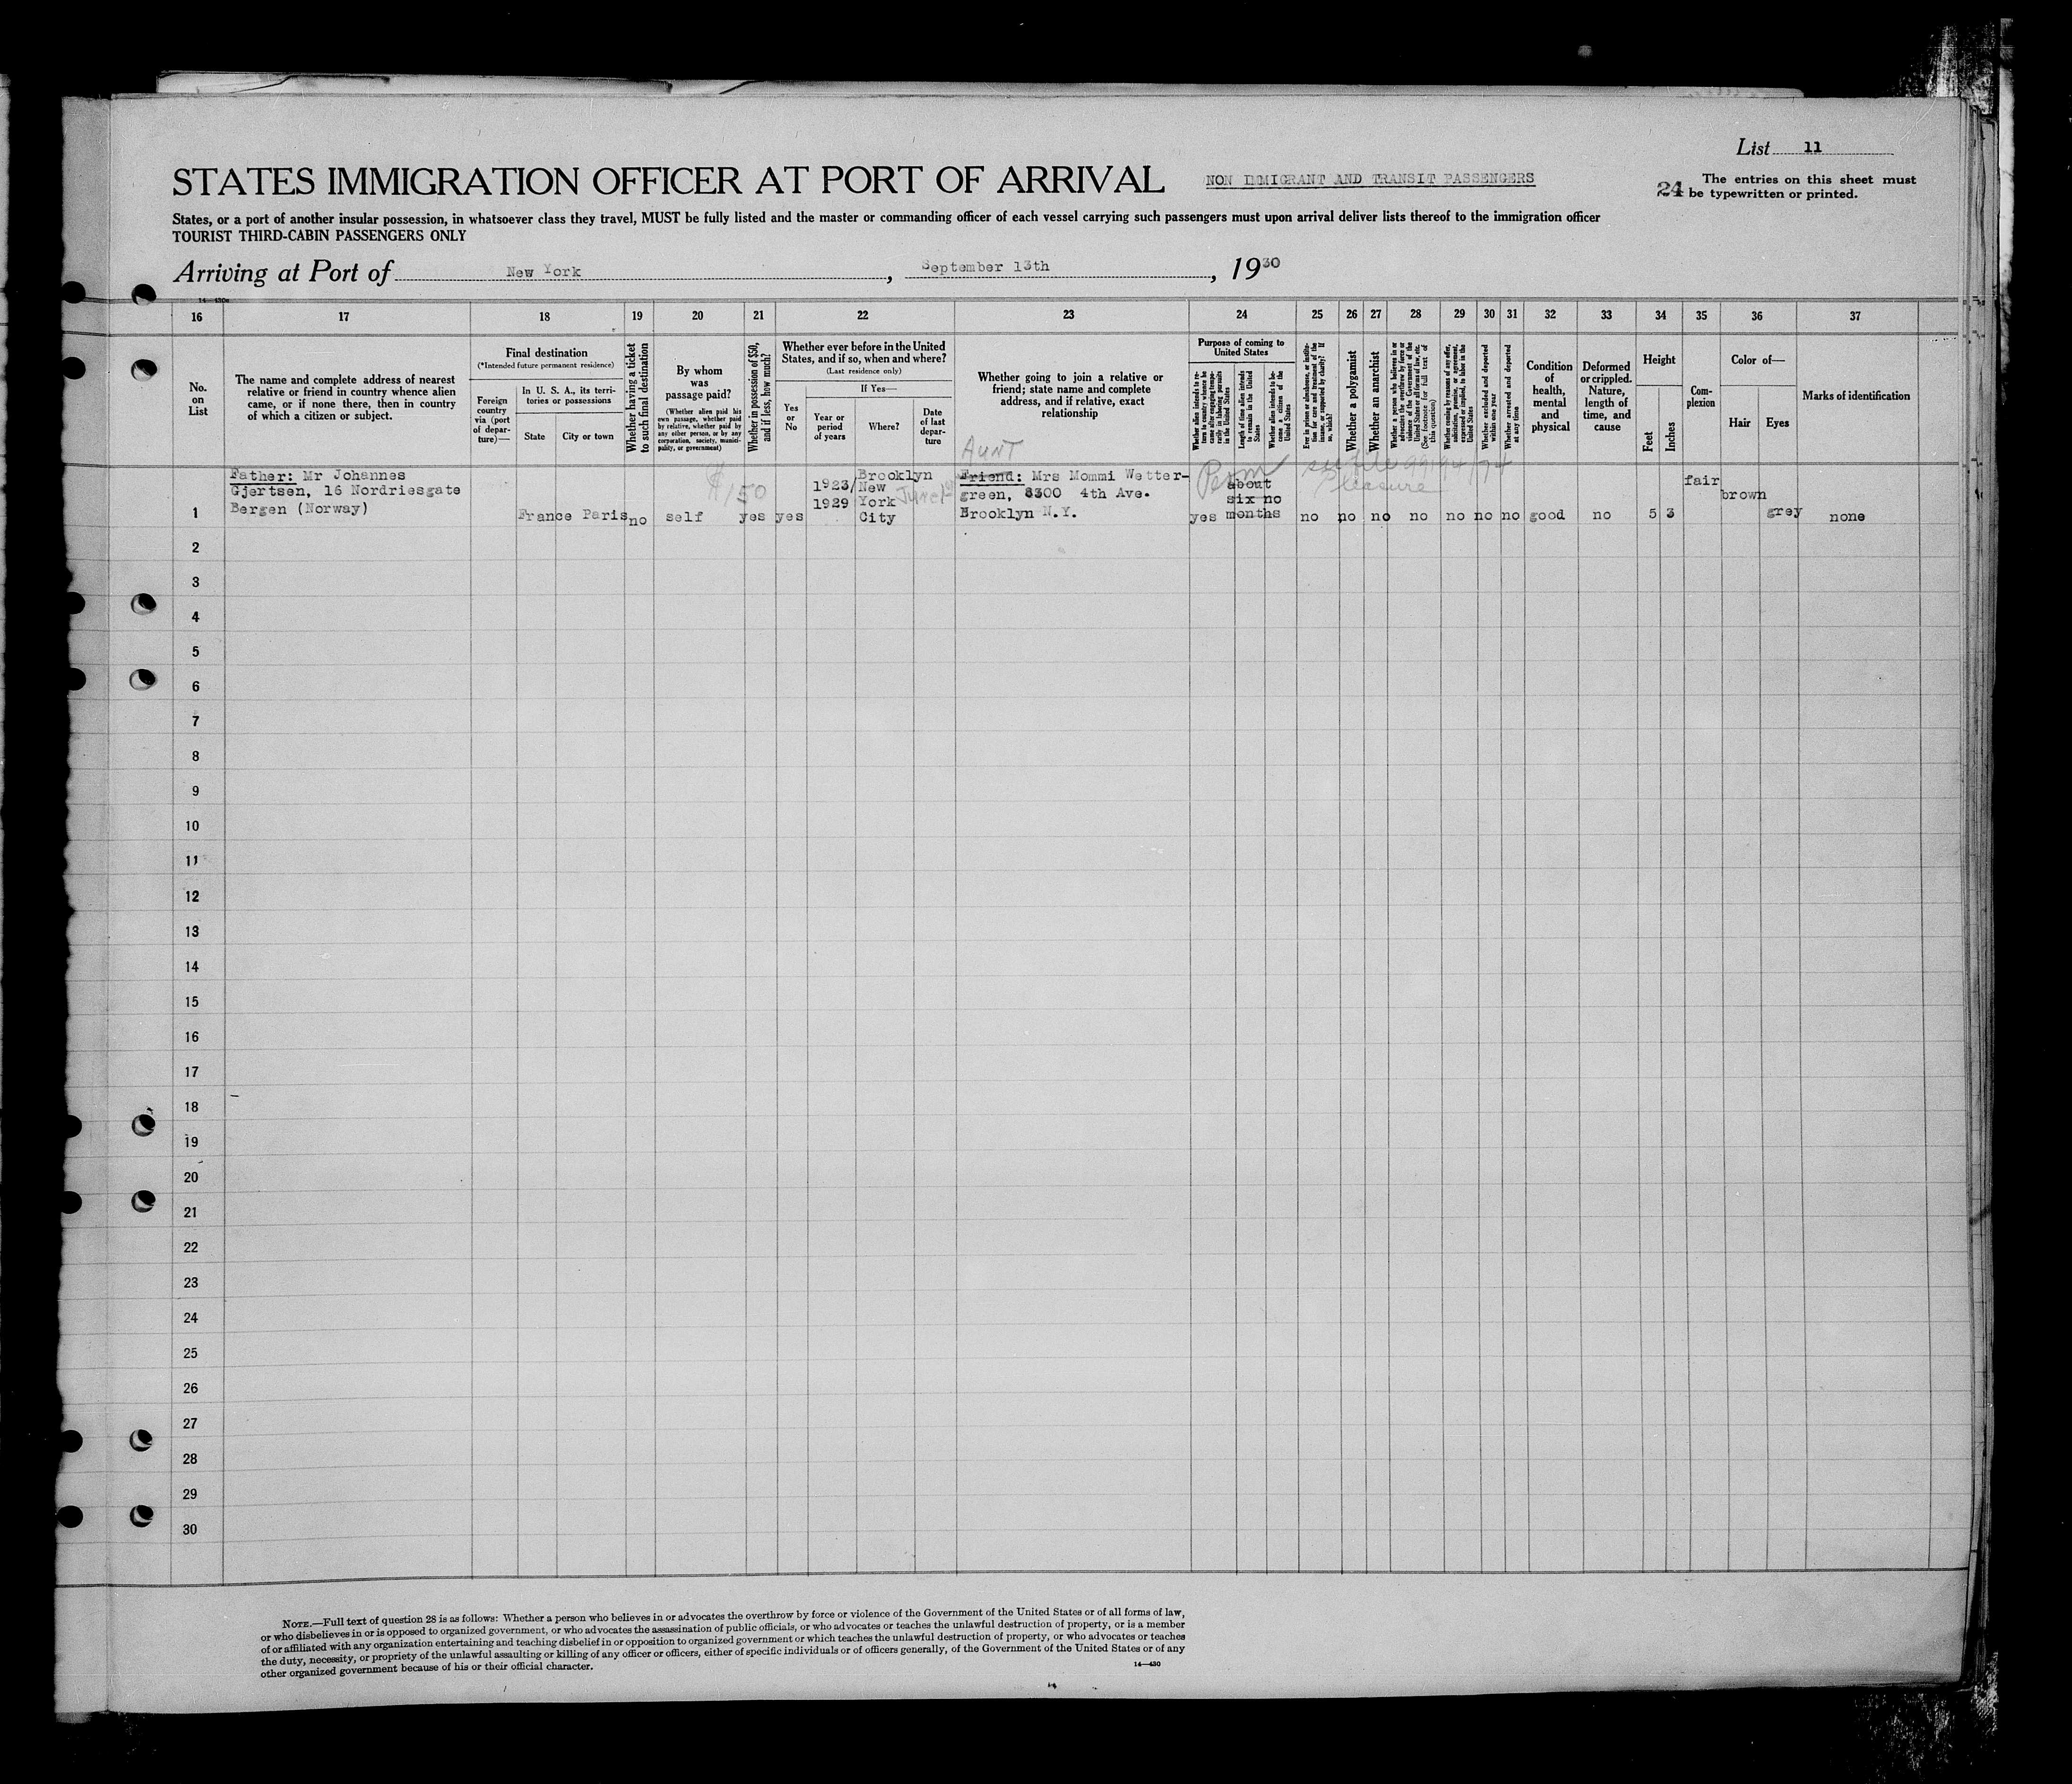 List 11
STATES IMMIGRATION OFFICER AT PORT OF ARRIVAL
NON IMMIGRANT AND TRANSIT PASSENGERS
24
The entries on this sheet must
be typewritten or printed.
States, or a port of another insular possession, in whatsoever class they travel, MUST be fully listed and the master or commanding officer of each vessel carrying such passengers must upon arrival deliver lists thereof to the immigration officer
TOURIST THIRD-CABIN PASSENGERS ONLY
Arriving at Port of New York, September 13th, 1930
16 17 18 19 20 21 22 23 24 25 26 27 28 29 30 31 32 33 34 35 36 37
No.
on
List
The name and complete address of nearest
relative or friend in country whence alien
came, or if none there, then in country
of which a citizen or subject.
Final destination
(*Intended future permanent residence)
Foreign
country
via (port
of depar-
ture)—
In U. S. A., its terri-
tories or possessions
State
City or town
Whether having a ticket
to such final destination
By whom
was
passage paid?
(Whether alien paid his
own passage, whether paid
by relative, whether paid by
any other person, or by any
corporation, society, munici-
pality, or government)
Whether in possession of $50,
and if less, how much?
Whether ever before in the United
States, and if so, when and where?
(Last residence only)
Yes
or
No
If Yes—
Year or
period
of years
Where?
Date
of last
depar-
ture
Whether going to join a relative or
friend; state name and complete
address, and if relative, exact
relationship
Purpose of coming to
United States
Whether alien intends to re-
turn to country whence he
came after engaging tempo-
rarily in laboring pursuits
in the United States
Length of time alien intends
to remain in the United
States
Whether alien intends to be-
come a citizen of the
United States
Ever in prison or almshouse, or institu-
tion for care and treatment of the
insane, or supported by charity? If
so, which?
Whether a polygamist
Whether an anarchist
Whether a person who believes in or
advocates the overthrow by force or
violence of the Government of the
United States or all forms of law, etc.
(See footnote for full text of
this question)
Whether coming by reason of any offer,
solicitation, promise, or agreement,
expressed or implied, to labor in the
United States
Whether excluded and deported
within one year
Whether arrested and deported
at any time
Condition
of
health,
mental
and
physical
Deformed
or crippled.
Nature,
length of
time, and
cause
Height
Feet
Inches
Com-
plexion
Color of—
Hair
Eyes
Marks of identification
AUNT
Father: Mr Johannes
Gjertsen, 16 Nordriesgate
Bergen (Norway)
France Paris
no
self
$150
yes
yes
1923/
1929
Brooklyn
New
York
City
June 1st
Friend: Mrs Mommi Wetter-
green, 8300 4th Ave.
Brooklyn N.Y.
Perm
yes
about
six no
months
see file 99194/74
Pleasure
no no no no no no no good no 5 3
fair
brown
grey
none
1
2
3
4
5
6
7
8
9
10
11
12
13
14
15
16
17
18
19
20
21
22
23
24
25
26
27
28
29
30
NOTE.—Full text of question 28 is as follows: Whether a person who believes in or advocates the overthrow by force or violence of the Government of the United States or of all forms of law,
or who disbelieves in or is opposed to organized government, or who advocates the assassination of public officials, or who advocates or teaches the unlawful destruction of property, or is a member
of or affiliated with any organization entertaining and teaching disbelief in or opposition to organized government or which teaches the unlawful destruction of property, or who advocates or teaches
the duty, necessity, or propriety of the unlawful assaulting or killing of any officer or officers, either of specific individuals or of officers generally, of the Government of the United States or of any
other organized government because of his or their official character.
14—430